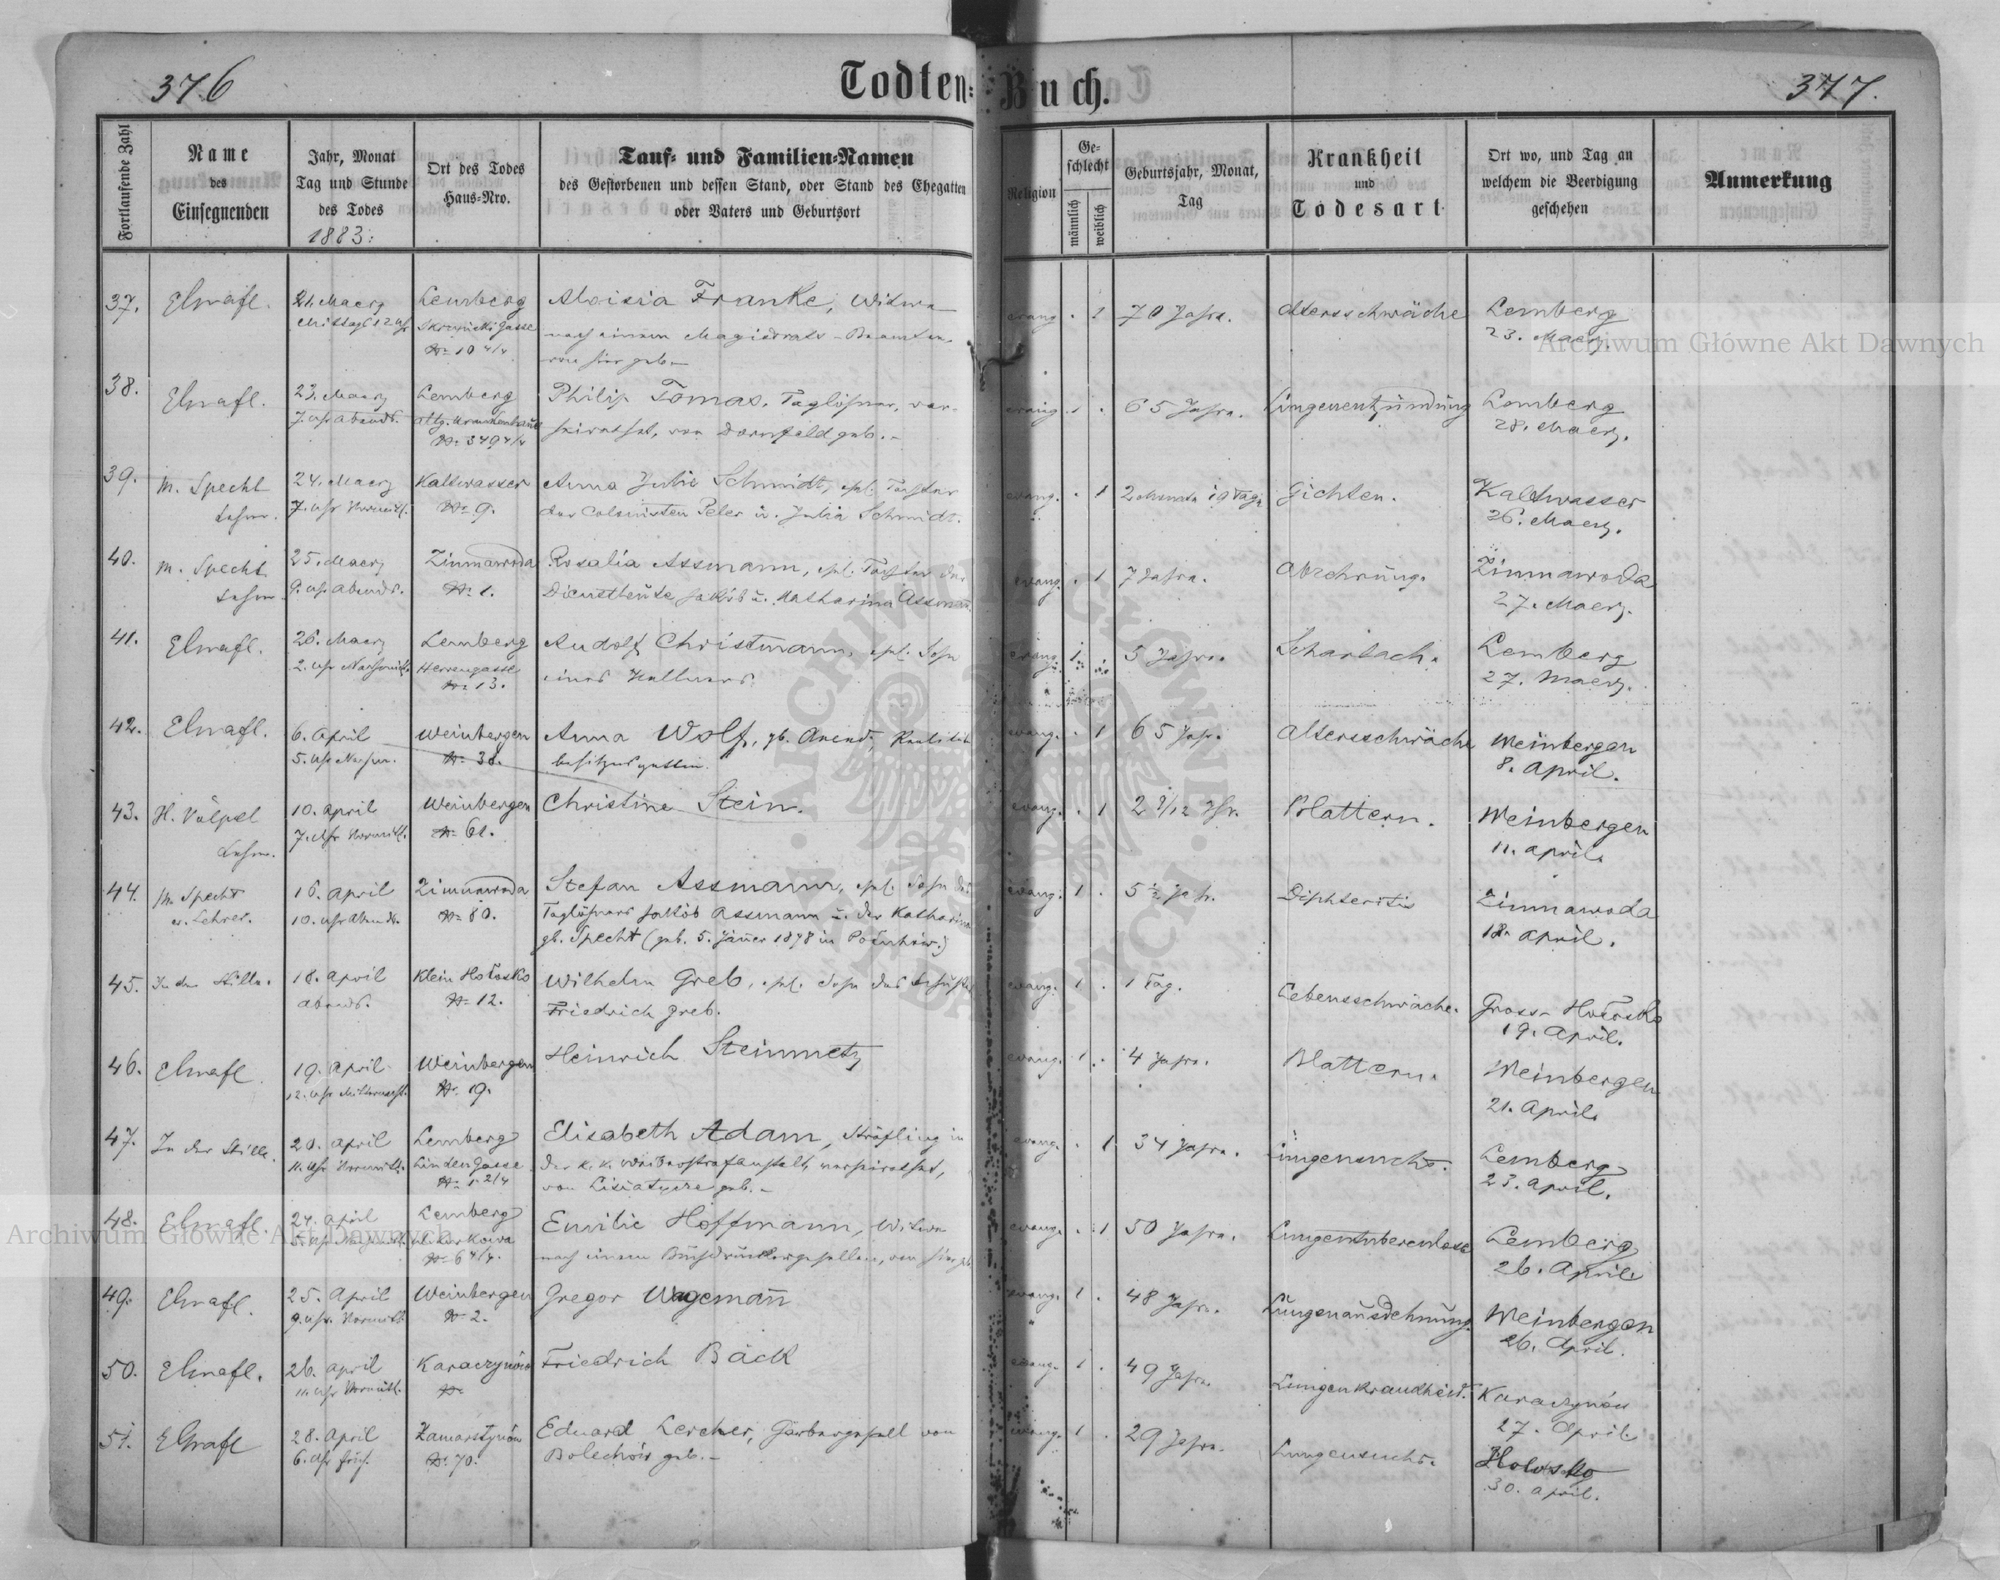 376
Todten-Buch.
377.
Fortlaufende Zahl
Name
des
Einsegnenden
Jahr, Monat
Tag und Stunde
des Todes
1883:
Ort des Todes
Haus-Nro.
Tauf- und Familien-Namen
des Gestorbenen und dessen Stand, oder Stand des Ehegatten
oder Vaters und Geburtsort
Religion
Ge-
schlecht
männlich
weiblich
Geburtsjahr, Monat,
Tag
Krankheit
und
Todesart
Ort wo, und Tag an
welchem die Beerdigung
geschehen
Anmerkung
37. 21. Maerz Lemberg Aloisia Franke, Witwe evang. 1 70 Jahre. Altersschwäche Lemberg
Mittags 12 Uhr nach einem Magistrats-Beamten, 23. Maerz.
№ 10 4/4 von hier geb.
38. 23. Maerz Lemberg Philip Tomas, Taglöhner, ver- evang. 1 65 Jahre. Lungenentzündung Lemberg
7. Uhr Abends. allg. Krankenhaus heirathet, von Dornfeld geb. 28. Maerz.
№ 349 4/4
39. M. Specht 24. Maerz Kaltwasser Anna Julie Schmidt, ehl. Tochter evang. 1 2 Monate 19 Tage Gichten. Kaltwasser
Lehrer. 7. Uhr Vormitt. № 9. des Colonisten Peter u. Julia Schmidt. 26. Maerz.
40. M. Specht 25. Maerz Zimnawoda Rosalia Assmann, ehl. Tochter der evang. 1 7 Jahre. Abzehrung. Zimnawoda
Lehrer. 9. Uhr Abends. № 1. Dienstleute Jakob u. Katharina Assmann 27. Maerz.
41. 26. Maerz Lemberg Rudolf Christmann, ehl. Sohn evang. 1 5 Jahre. Scharlach. Lemberg
2. Uhr Nachmitt. Herrengasse eines Kellners. 27. Maerz.
№ 13.
42. 6. April Weinbergen Anna Wolf, gb. Arend, evang. 1 65 Jahr. Altersschwäche Weinbergen
5. Uhr № 38. besitzersgattin. 8. April.
43. H. Völpel 10. April Weinbergen Christine Stein. evang. 1 2 Jhr. Blattern. Weinbergen
Lehrer. 7. Uhr Vormitt. № 61. 11. April.
44. M. Specht 16. April Zimnawoda Stefan Assmann, ehl. Sohn des evang. 1 5 1/2 Jahr. Diphteritis Zimnawoda
ev. Lehrer. 10. Uhr Abends. № 80. Taglöhners Jakob Assmann u. der Katharina 18. April.
gb. Specht (geb. 5. Jäner 1878 in
45. In der Stille. 18. April Klein Hołosko Wilhelm Greb, ehl. Sohn des evang. 1 1 Tag. Lebensschwäche. Gross-Hołosko
Abends. № 12. Friedrich Greb. 19. April.
46. 19. April Weinbergen Heinrich Steinmetz evang. 1 4 Jahre. Blattern. Weinbergen
12. Uhr Mitternacht. № 19. 21. April.
47. In der Stille. 20. April Lemberg Elisabeth Adam, Sträfling in evang. 1 34 Jahre. Lungensucht. Lemberg
11. Uhr Vormitt. Linden Gasse der k. k. Weiberstrafanstalt, verheirathet, 23. April.
№ 1 2/4 von geb.
48. 24. April Lemberg Emilie Hoffmann, Witwe evang. 1 50 Jahre. Lungentuberculose Lemberg
№ 6 4/4. nach einem Buchdruckergesellen, von hier 26. April.
49. 25. April Weinbergen Gregor Wagemann evang. 1 48 Jahre. Lungenausdehnung. Weinbergen
9. Uhr. Vormitt. № 2. 26. April.
50. 26. April Karaczynów Friedrich Bäck evang. 1 49 Jahre. Lungenkrankheit. Karaczynów
11. Uhr Vormitt. № 27. April.
51. 28. April Zamarstynów Eduard Lercher, Gärbergesell von evang. 1 29 Jahre. Lungensucht. Holosko
6. Uhr früh. № 70. Bolechów geb. 30. April.
Archiwum Główne Akt Dawnych
Archiwum Główne Akt Dawnych